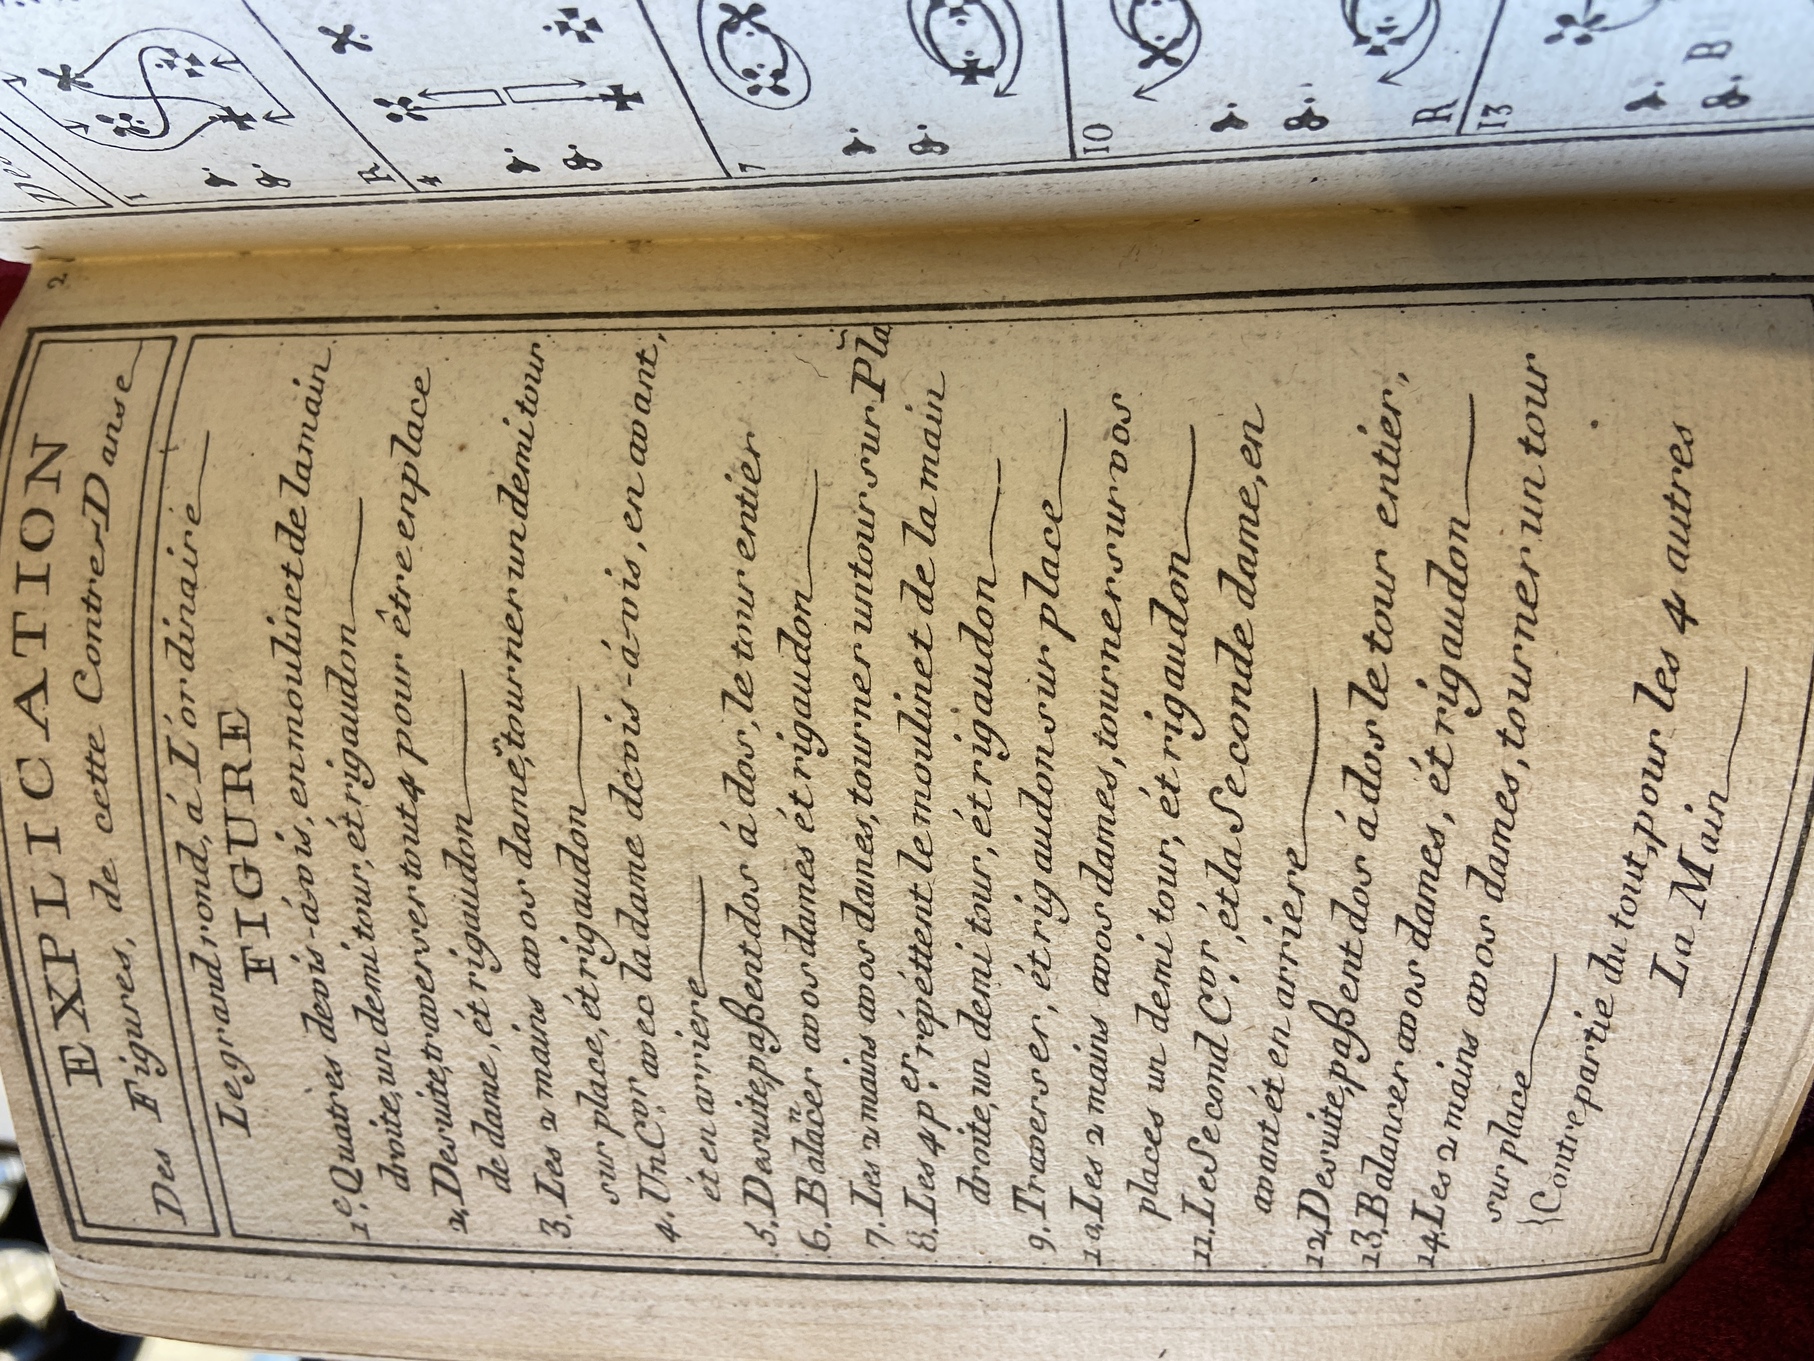 2
EXPLICATION
Des Figures, de cette ContreDanse
Le grand rond, á L'ordinaire
FIGURE
1.e Quatres devis-ávis, en moulinet de la main
droite, un demi tour, ét rigaudon
2. Desuite, traverser tout 4 pour être en place
de dame, ét rigaudon
3. Les 2 mains avos dame,n tourner un demi tour
sur place, ét rigaudon
4. Un C.er avec la dame devis-á-vis, en avant,
ét en arriére
5. Desuite, paßent dos á dos, le tour entiér
6. Balancer avos damés ét rigaudon
7. Les 2 mains avos dames, tourner un tour sur Pla
8. Les 4 p.er répéttent le moulinet de la main
droite, un demi tour, ét rigaudon
9. Traverser, ét rigaudon sur place
10. Les 2 mains avos dames, tourner sur vos
places un demi tour, ét rigaudon
11. Le Second C.er, ét la Seconde dame, en
avant ét en arriere
12. Desuite, paßent dos á dos le tour entier,
13. Balancer avos dames, ét rigaudon
14. Les 2 mains avos dames, tourner un tour
sur place
{Contre partie du tout, pour les 4 autres
La Main
1
R
4
7
10
R
13
B